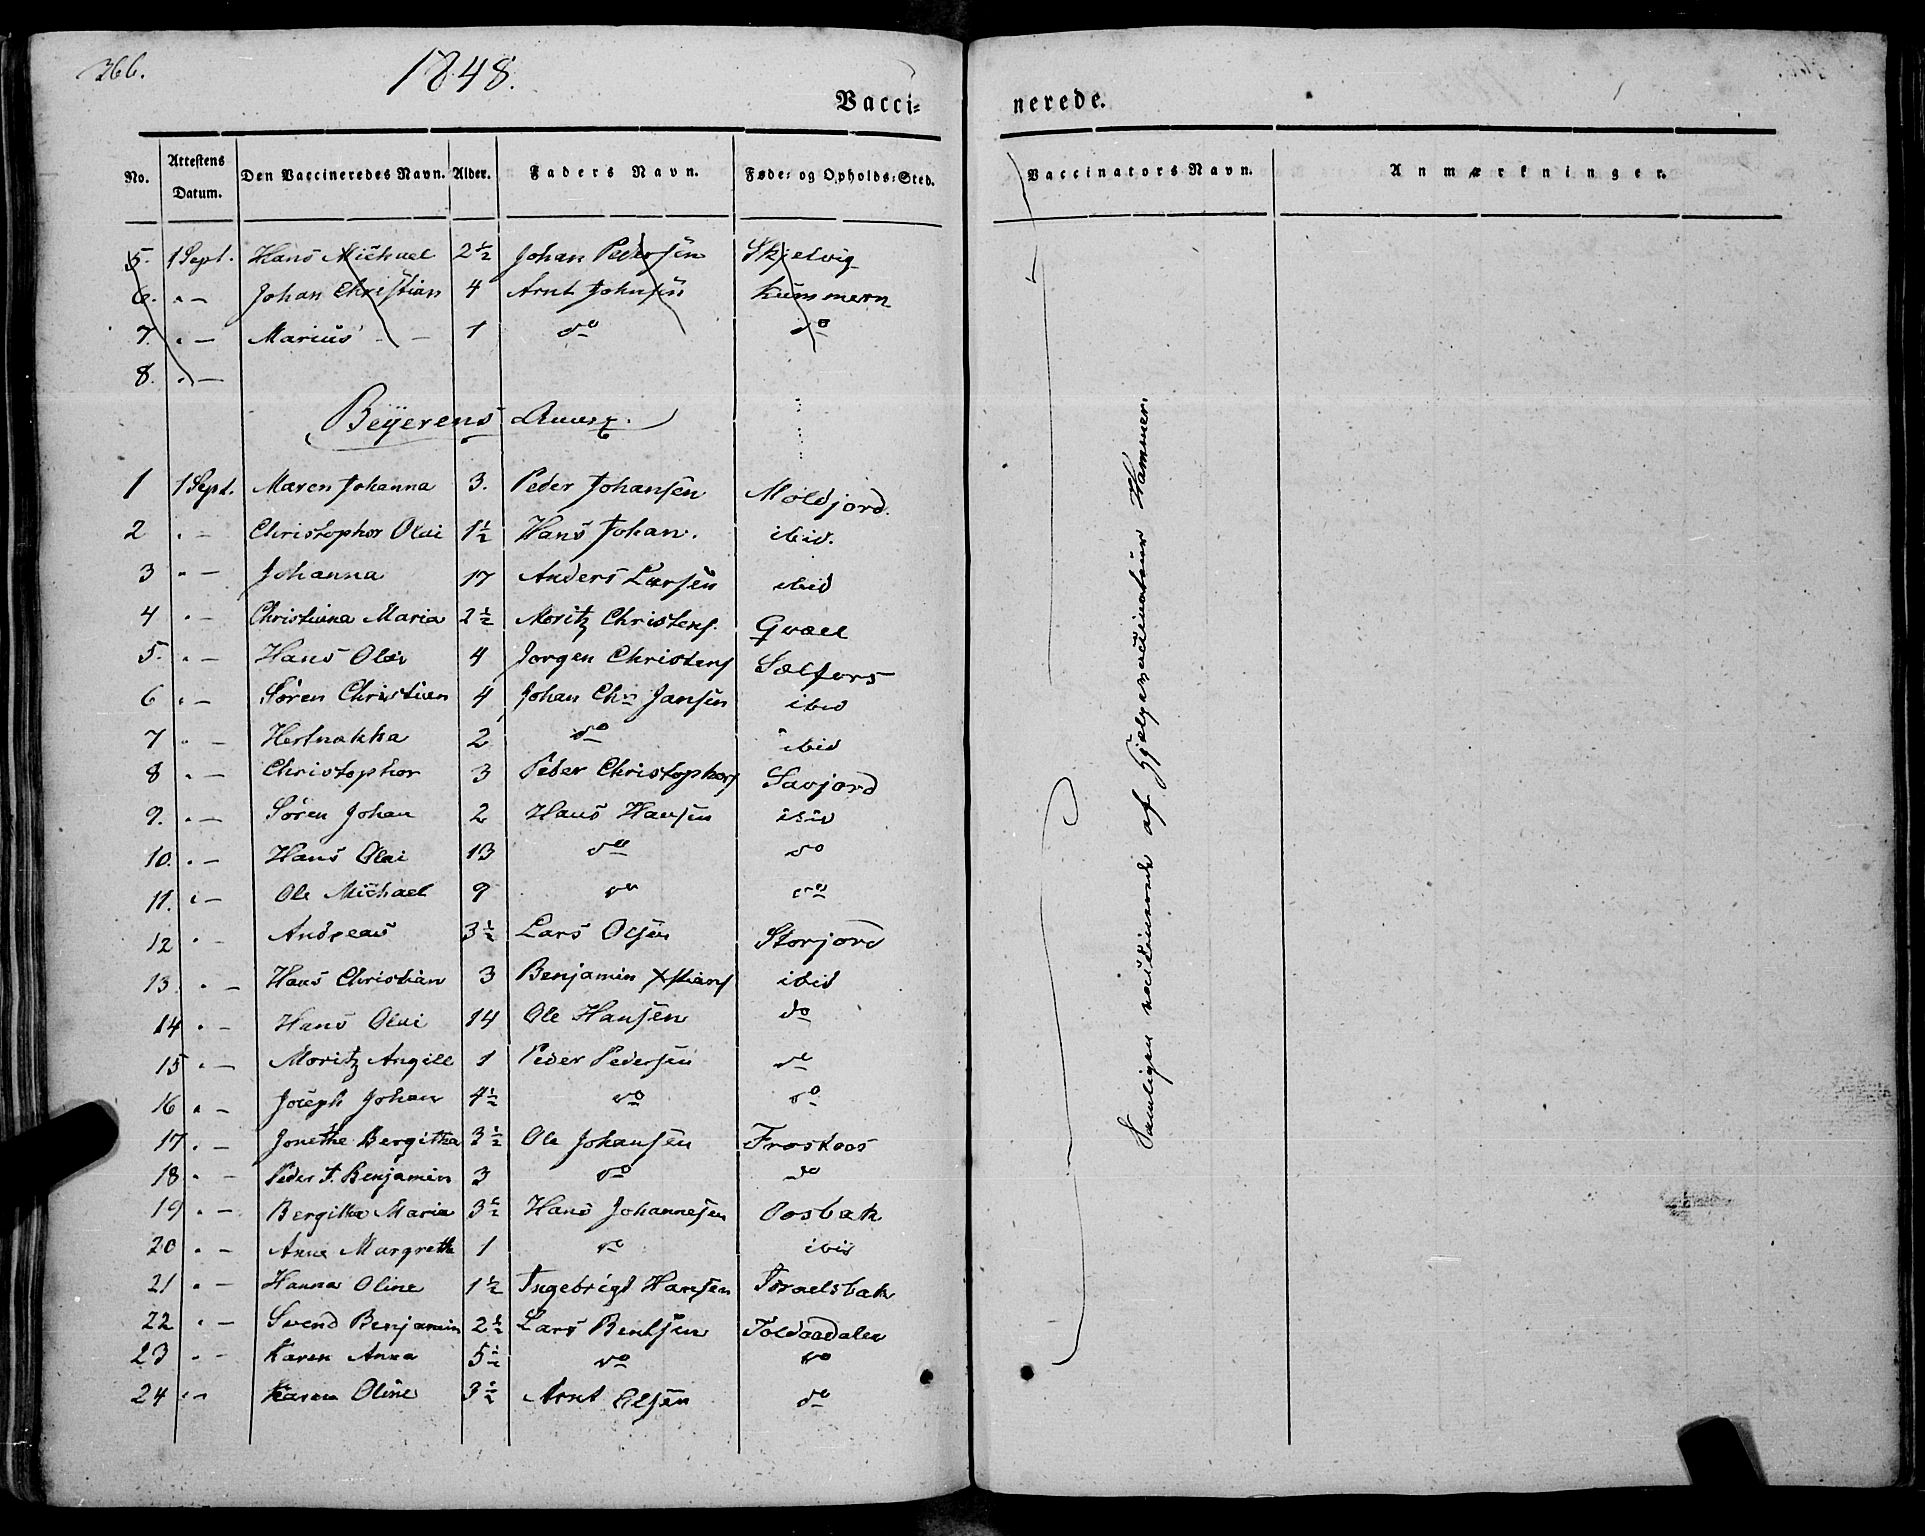 366.
1848.
Vacci- nerede.
No. Attestens Datum. Den Vaccineredes Navn. Alder. Faders Navn. Føde- og Opholds-Sted. Vaccinators Navn. Anmærkninger.
5. 1 Sept. Hans Michael 2½ Johan Pedersen Skjelvig
6. " — Johan Christian 4 Arnt Johnsen Kummern
7. " — Marius 1 do do
8. " —
Beyerens Annex.
1 1 Sept. Maren Johanna 3. Peder Johansen Moldjord.
2 " — Christopher Olai 1½ Hans Johan. ibid.
3 " — Johanna 17 Anders Larsen ibid
4 " — Christiana Maria 2½ Moritz Christens. Qvæll
5. " — Hans Olai 4 Jørgen Christens Sælfors
6 " — Søren Christian 4 Johan Chr Jansen ibid
7 " — 2 do ibid
8 " — Christopher 3 Peder Christophers Savjord
9. " — Søren Johan 2 Hans Hansen ibid
10. " — Hans Olai 13 do do
11. " — Ole Michael 9 do do
12 " — Andreas 3½ Lars Olsen Storjord
13. " — Hans Christian 3 Benjamin Xstians ibid
14 " — Hans Olai 14 Ole Hansen do
15 " — Moritz Angell 1 Peder Pedersen do
16 " — Joseph Johan 4½ do do
17 " — Jonethe Bergitha 3½ Ole Johansen Froskoos
18 " — Peder J. Benjamin 3 do do
19 " — Bergitha Maria 3½ Hans Johannesen Oosbak
20 " — Anne Margreth 1 do ibid
21 " — Hanna Oline 1½ Ingebrigt Hansen Israelsbak
22 " — Svend Benjamin 2½ Lars Bentsen Toldaadalen
23 " — Karen Anna 5½ do do
24 " — Karen Oline 3½ Arnt Olsen do
Samtlige vaccinerede af Hjelpevaccinateur Hammer.